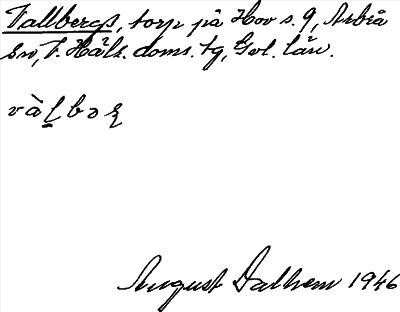 Vallbergs, torp på Hov s. 9, Arbrå
sn, V. Häls. doms. tg, Gvl. län.
vàḷbəʂ
August Dalhem 1946